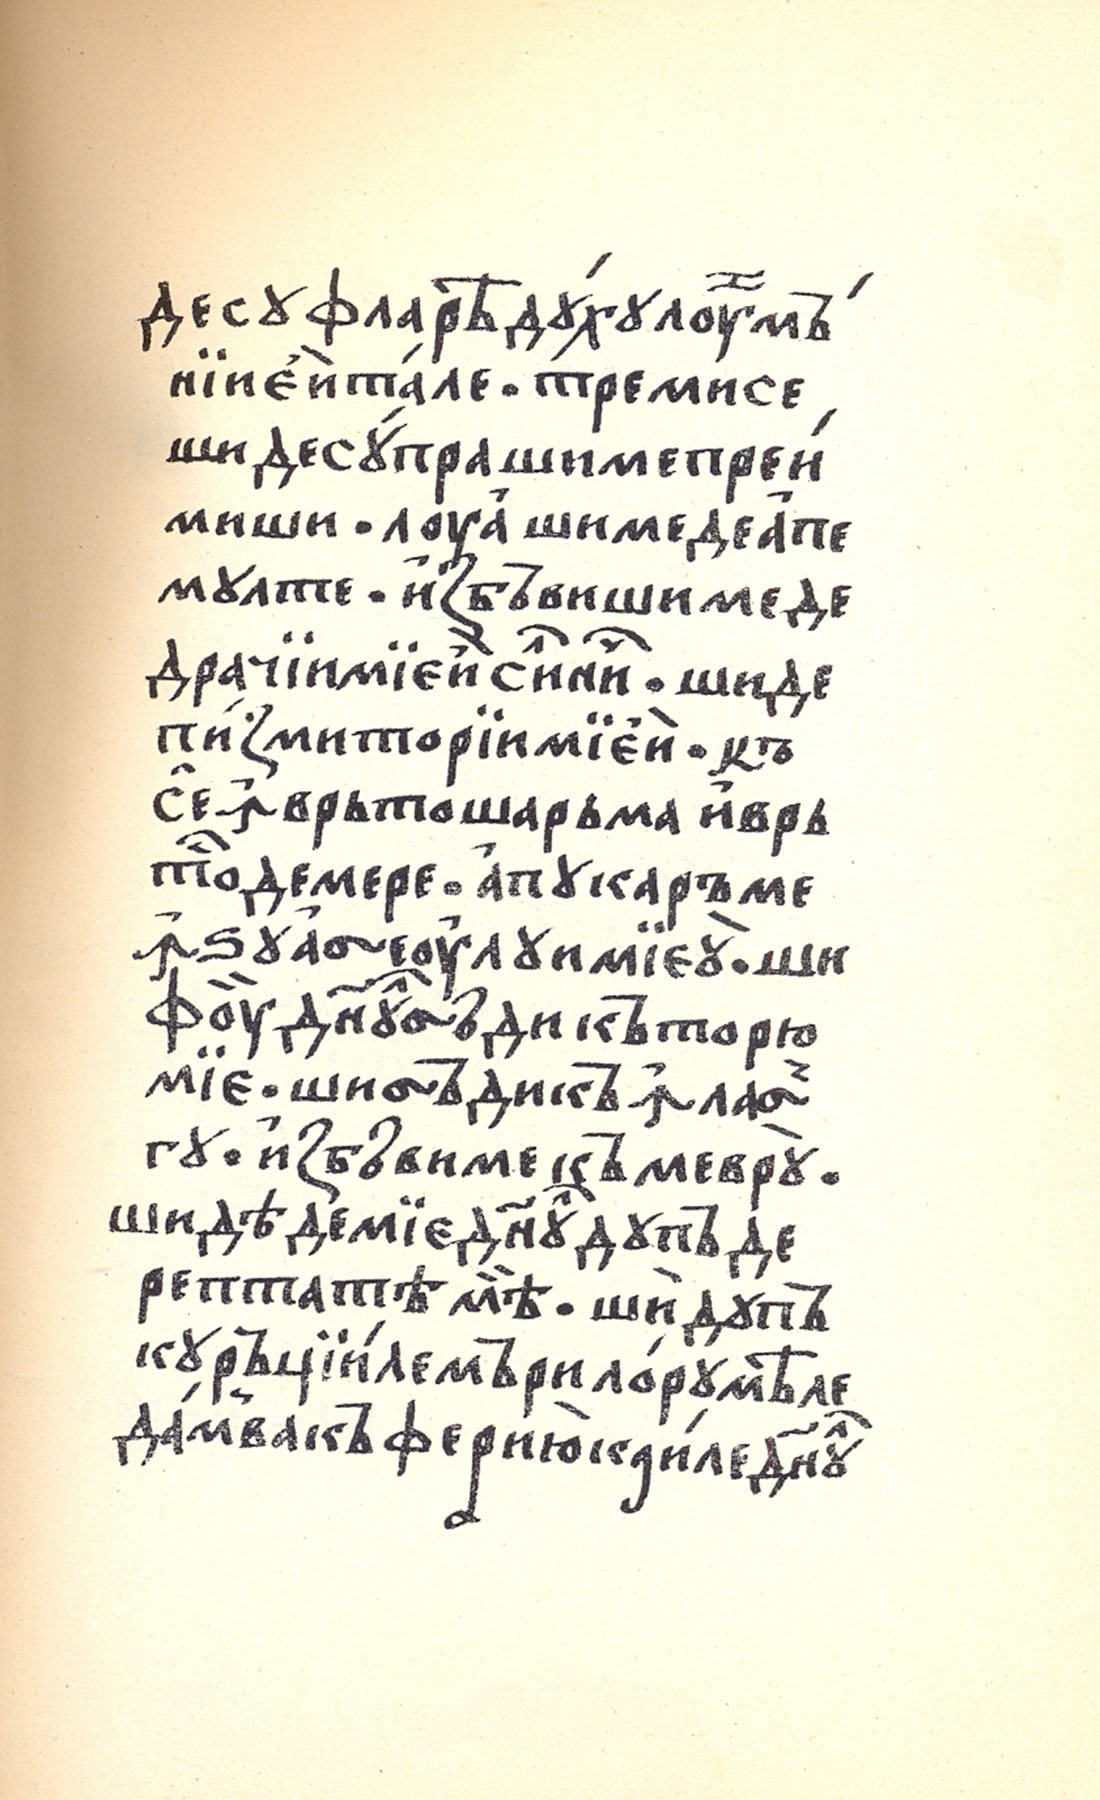 десꙋфларѣ дꙋхꙋлоуй мъ
нїи єй тале · тремисе
ши десꙋпра шиме прей
миши · лоуа шиме деапе
мꙋлте · избъви шиме де
драчїи мїєй силни · ши де
пизмиторїи мїєй · къ
се ꙟврътошарь ма иврь
тѡ демере · апꙋкаръме
ꙟ ѕꙋа ѕлеоу лꙋи мїєꙋ · ши
фоу дн҃ꙋл ѕъдикъторю
мїє · ши ѕъдикъ ꙟ лаѕ
гꙋ · избъвиме къ меврꙋ ·
ши дѣде мїє дн҃ꙋл дꙋпъ де
рептатѣ мѣ · ши дꙋпъ
кꙋръцїиле мърилорꙋ мѣле
да мва къ ферию кꙋиле дн҃ꙋл